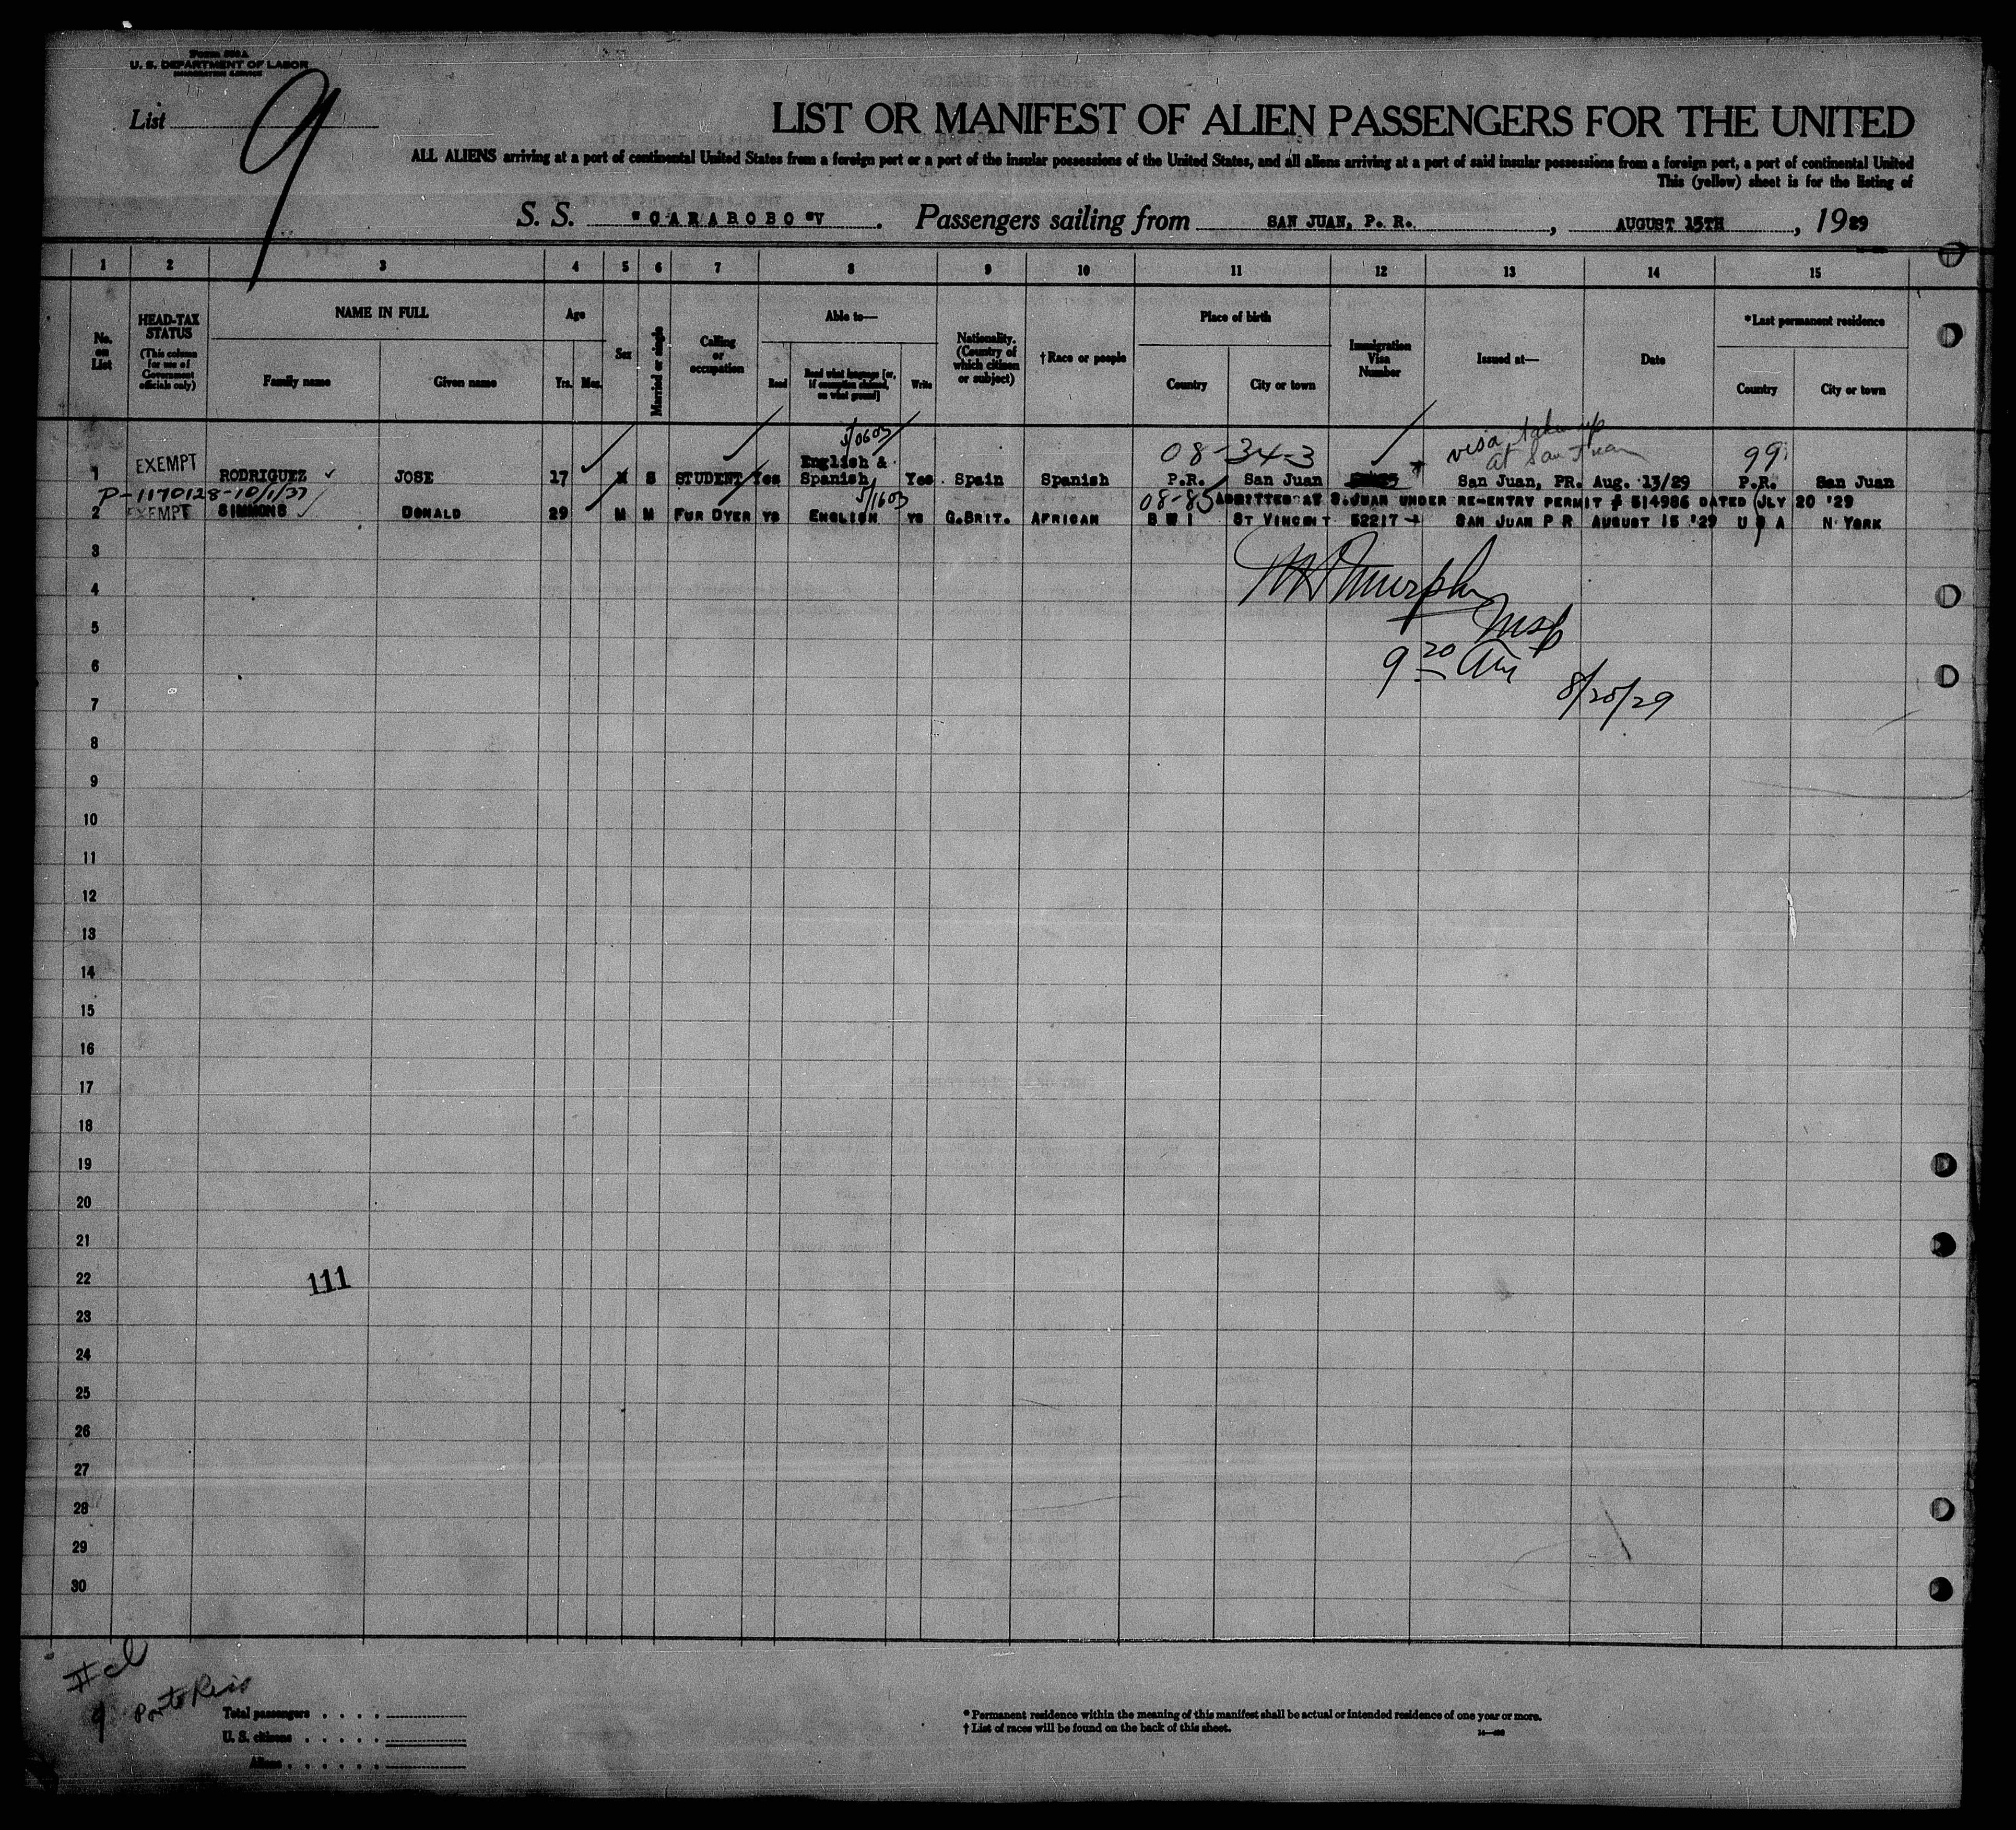 Form 500 A
U. S. DEPARTMENT OF LABOR
IMMIGRATION SERVICE
List 9
LIST OR MANIFEST OF ALIEN PASSENGERS FOR THE UNITED
ALL ALIENS arriving at a port of continental United States from a foreign port or a port of the insular possessions of the United States, and all aliens arriving at a port of said insular possessions from a foreign port, a port of continental United
This (yellow) sheet is for the listing of
S. S. "CARABOBO "V . Passengers sailing from SAN JUAN, P. R. , AUGUST 15TH , 1929
1 2 3 4 5 6 7 8 9 10 11 12 13 14 15
No. on List
HEAD-TAX STATUS
(This column for use of Government officials only)
NAME IN FULL
Family name Given name
Age
Yrs. Mos.
Sex
Married or single
Calling or occupation
Able to—
Read Read what language [or, if exemption claimed, on what ground] Write
Nationality. (Country of which citizen or subject)
†Race or people
Place of birth
Country City or town
Immigration Visa Number
Issued at—
Date
*Last permanent residence
Country City or town
5/0603
08-34-3 visa taken up at San Juan 99
1 EXEMPT RODRIGUEZ JOSE 17 M S STUDENT Yes English & Spanish Yes Spain Spanish P.R. San Juan San Juan, PR. Aug. 13/29 P.R. San Juan
P-1170128-10/1/37 5/1603 08-85 ADMITTED AT S.JUAN UNDER RE-ENTRY PERMIT # 514986 DATED JLY 20 '29
2 EXEMPT SIMMONS DONALD 29 M M FUR DYER YS ENGLISH YS G.BRIT. AFRICAN B W I ST VINCENT 52217 SAN JUAN P R AUGUST 15 '29 U S A N YORK
3
4
5
6
7
8
9
10
11
12
13
14
15
16
17
18
19
20
21
22
23
24
25
26
27
28
29
30
Murphy
9 20 Am
8/20/29
111
II cl
9 Porto Rico
Total passengers . . . .
U. S. citizens . . . . .
Aliens . . . . . .
* Permanent residence within the meaning of this manifest shall be actual or intended residence of one year or more.
† List of races will be found on the back of this sheet.